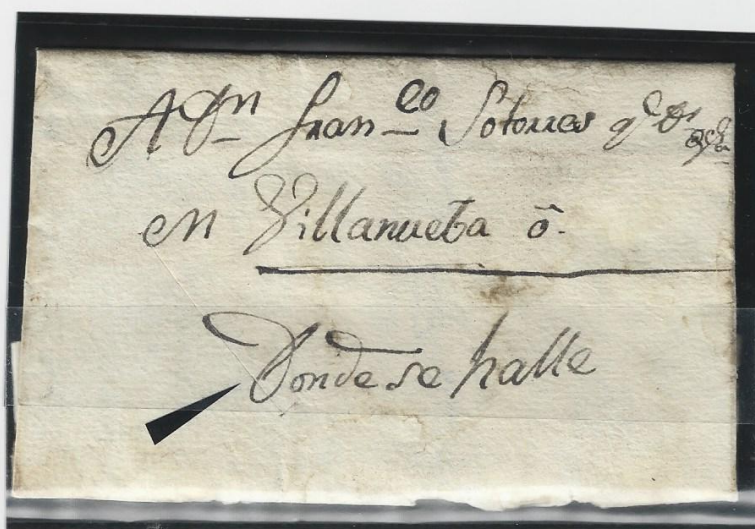 A Dn Franco Sotorres q Ds
en Villanueba ô.
Donde se halle